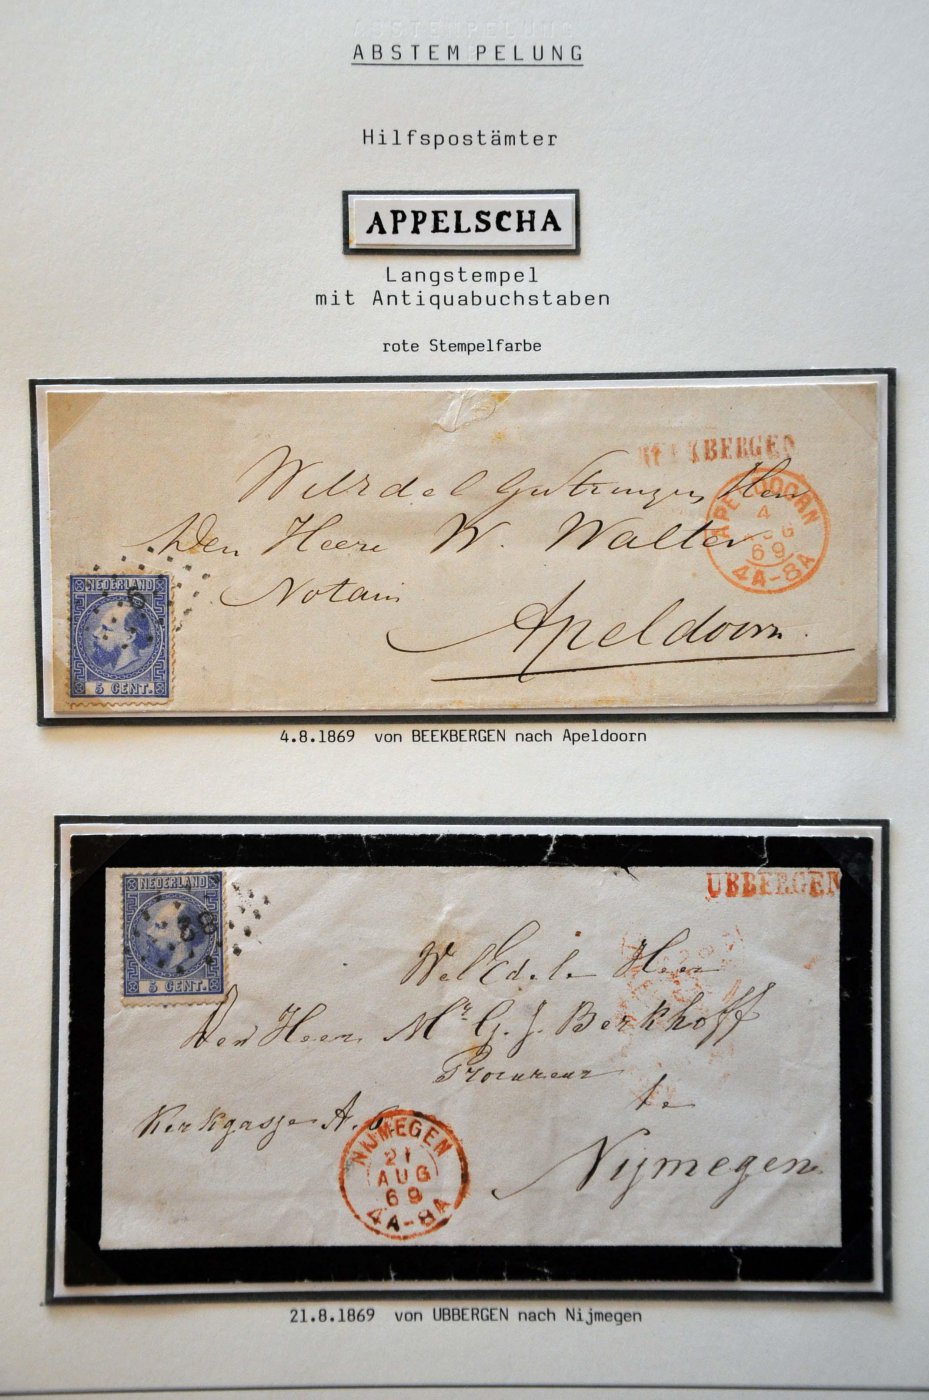 ABSTEMPELUNG
Hilfspostämter
APPELSCHA
Langstempel
mit Antiquabuchstaben
rote Stempelfarbe
BERGEN
APELDOORN
4
69
4A-8A
Den Heere W. Walter
Notaris
Apeldoorn.
NEDERLAND
5 CENT.
4.8.1869 von BEEKBERGEN nach Apeldoorn
NEDERLAND
5 CENT.
UBBERGEN
WelEdele Heer
Den Heer Mr. G. J. Berkhoff
Procureur
te
Kerkgasje A.
Nijmegen
NIJMEGEN
21
AUG
69
4A-8A
21.8.1869 von UBBERGEN nach Nijmegen